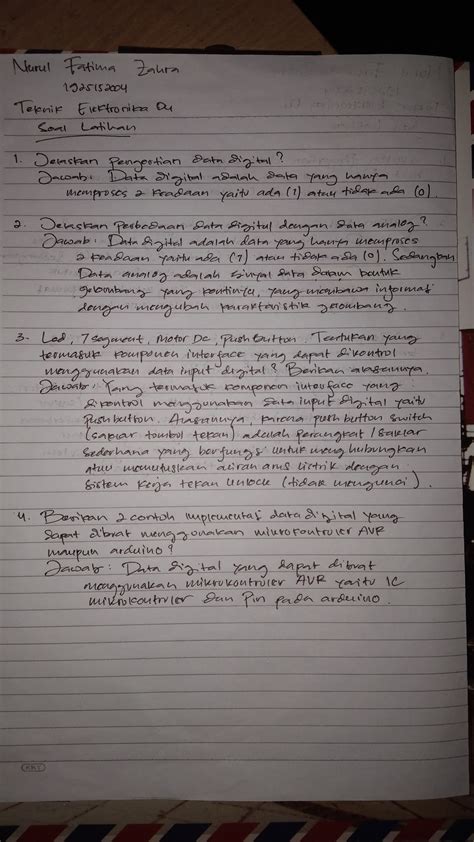 Nurul Fatima Zahra
1925152004
Teknik Elektronika D4
Soal Latihan
1. Jelaskan Pengertian data digital?
Jawab: Data digital adalah data yang hanya
memproses 2 keadaan yaitu ada (1) atau tidak ada (0).
2. Jelaskan Perbedaan data digital dengan data analog?
Jawab: Data digital adalah data yang hanya memproses
2 keadaan yaitu ada (1) atau tidak ada (0). Sedangkan
Data analog adalah sinyal data dalam bentuk
gelombang yang kontinyu, yang membawa informasi
dengan mengubah karakteristik gelombang.
3. Led, 7 segment, Motor Dc, Push Button. Tentukan yang
termasuk komponen interface yang dapat dikontrol
menggunakan data input digital? Berikan alasannya.
Jawab: Yang termasuk komponen interface yang
dikontrol menggunakan data input digital yaitu
pushbutton. Alasannya, karena push button switch
(saklar tombol tekan) adalah perangkat / saklar
sederhana yang berfungsi untuk menghubungkan
atau memutuskan aliran arus listrik dengan
sistem kerja tekan unlock (tidak mengunci).
4. Berikan 2 contoh implementasi data digital yang
dapat dibuat menggunakan mikrokontroler AVR
maupun arduino?
Jawab: Data digital yang dapat dibuat
menggunakan mikrokontroler AVR yaitu IC
mikrokontroler dan Pin pada arduino.
KKY